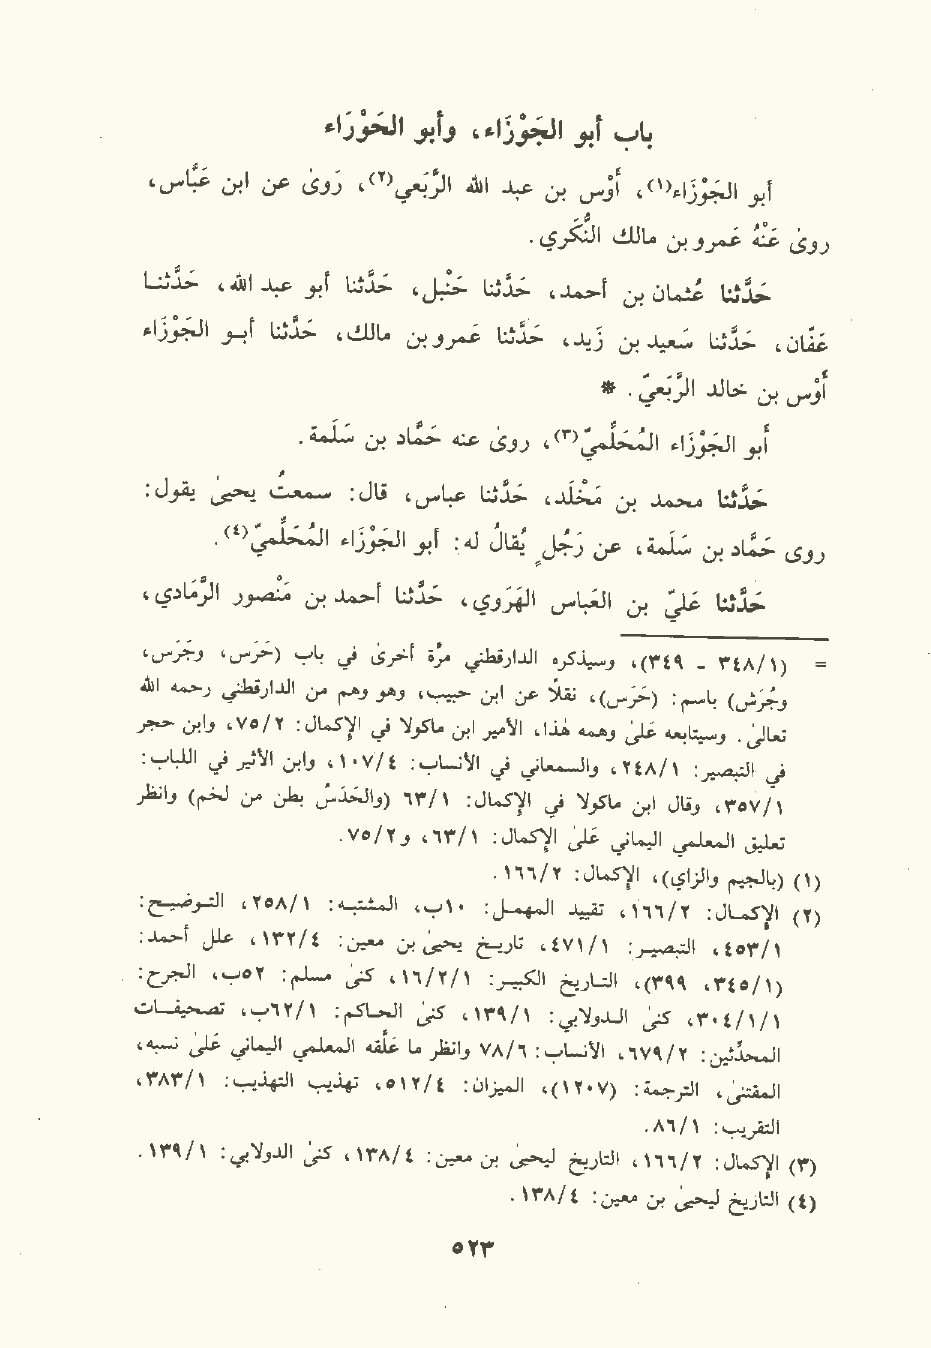 باب أبو الجَوْزَاء، وأبو الحَوْرَاء
أبو الجَوْزَاء(١)، أَوْس بن عبد الله الرَّبَعي(٢)، رَوىٰ عن ابن عَبَّاس،
روىٰ عَنْهُ عَمرو بن مالك النُّكري.
حَدَّثنا عُثمان بن أحمد، حَدَّثنا حَنْبل، حَدَّثنا أبو عبد الله، حَدَّثنا
عَفّان، حَدَّثنا سَعيد بن زَيد، حَدَّثنا عَمرو بن مالك، حَدَّثنا أبو الجَوْزَاء
أَوْس بن خالد الرَّبَعيّ. *
أبو الجَوْزَاء المُحَلِّميّ(٣)، روىٰ عنه حَمَّاد بن سَلَمة.
حَدَّثنا محمد بن مَخْلَد، حَدَّثنا عباس، قال: سمعتُ يحيىٰ يقول:
روى حَمَّاد بن سَلَمة، عن رَجُلٍ يُقالُ له: أبو الجَوْزَاء المُحَلِّميّ(٤).
حَدَّثنا عَليّ بن العَباس الهَرَوي، حَدَّثنا أحمد بن مَنْصور الرَّمَادي،
= (٣٤٨/١ - ٣٤٩)، وسيذكره الدارقطني مرّة أخرىٰ في باب (حَرَس، وجَرَس،
وجُرَش) باسم: (حَرَس)، نقلاً عن ابن حبيب، وهو وهم من الدارقطني رحمه الله
تعالىٰ. وسيتابعه علىٰ وهمه هٰذا، الأمير ابن ماكولا في الإكمال: ٧٥/٢، وابن حجر
في التبصير: ٢٤٨/١، والسمعاني في الأنساب: ١٠٧/٤، وابن الأثير في اللباب:
٣٥٧/١، وقال ابن ماكولا في الإكمال: ٦٣/١ (والحَدَسُ بطن من لخم) وانظر
تعليق المعلمي اليماني علىٰ الإكمال: ٦٣/١، و٧٥/٢.
(١) (بالجيم والزاي)، الإكمال: ١٦٦/٢.
(٢) الإكمال: ١٦٦/٢، تقييد المهمل: ١٠ب، المشتبه: ٢٥٨/١، التوضيح:
٤٥٣/١، التبصير: ٤٧١/١، تاريخ يحيىٰ بن معين: ١٣٢/٤، علل أحمد:
(٣٤٥/١، ٣٩٩)، التاريخ الكبير: ١٦/٢/١، كنىٰ مسلم: ٥٢ب، الجرح:
٣٠٤/١/١، كنىٰ الدولابي: ١٣٩/١، كنىٰ الحاكم: ٦٢/١ب، تصحيفات
المحدّثين: ٦٧٩/٢، الأنساب: ٧٨/٦ وانظر ما علّقه المعلمي اليماني علىٰ نسبه،
المقتنىٰ، الترجمة: (١٢٠٧)، الميزان: ٥١٢/٤، تهذيب التهذيب: ٣٨٣/١،
التقريب: ٨٦/١.
(٣) الإكمال: ١٦٦/٢، التاريخ ليحيىٰ بن معين: ١٣٨/٤، كنىٰ الدولابي: ١٣٩/١.
(٤) التاريخ ليحيىٰ بن معين: ١٣٨/٤.
٥٢٣